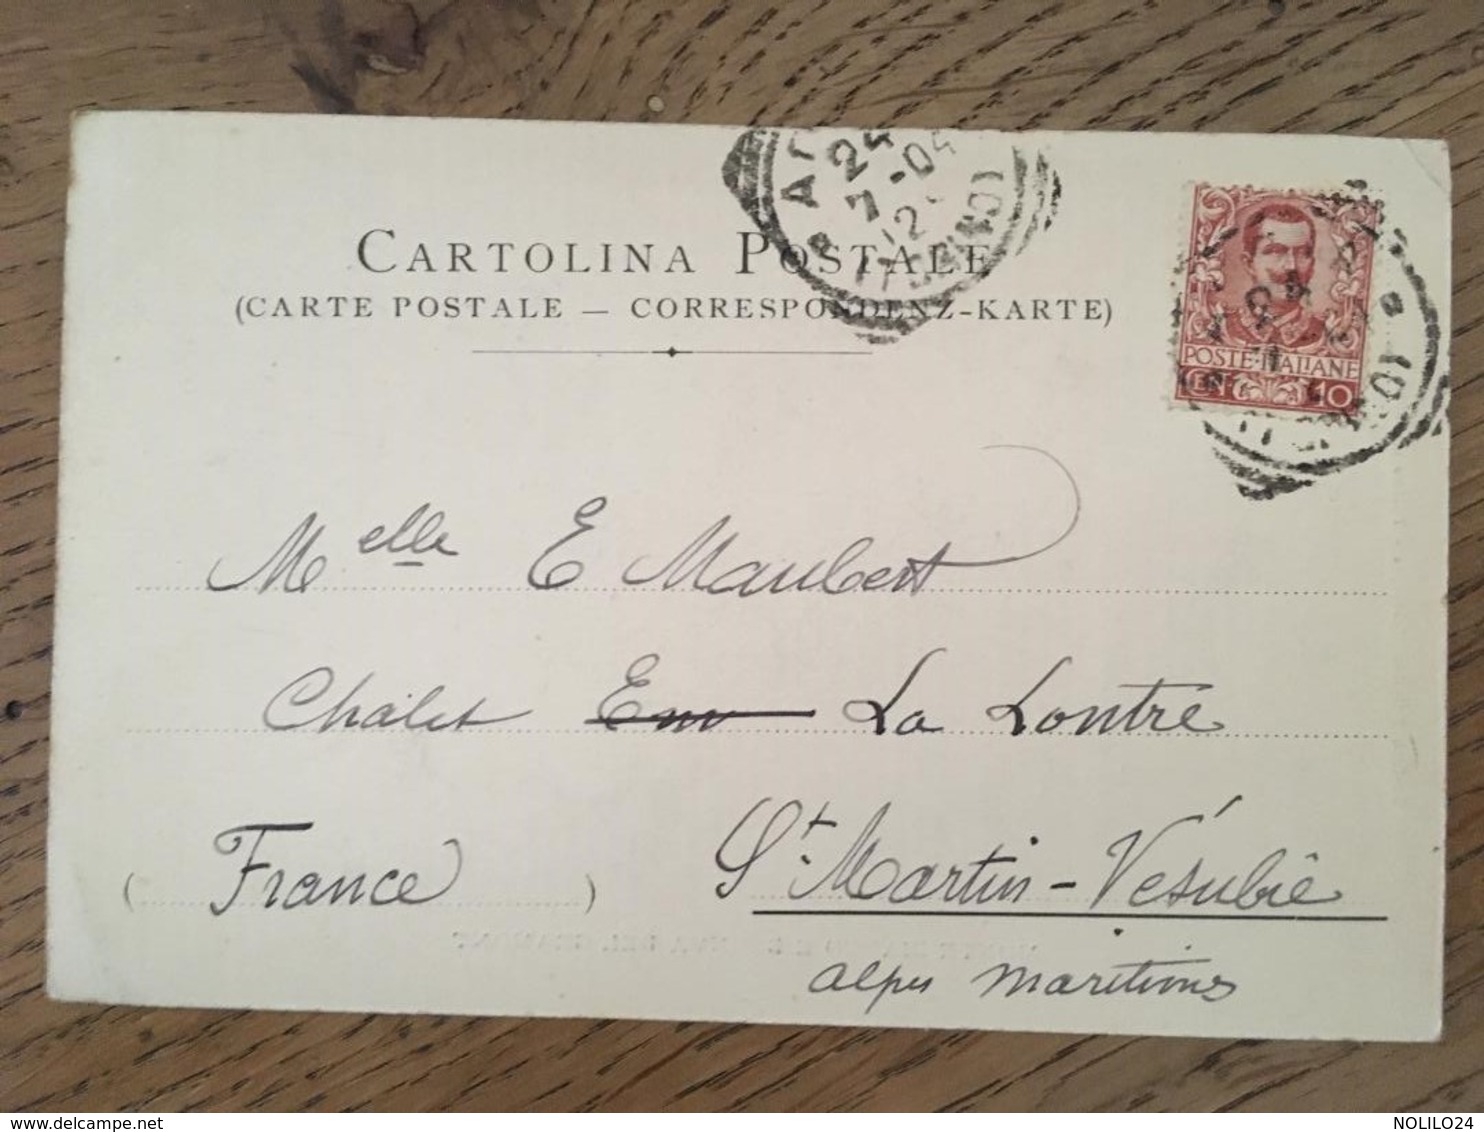 CARTOLINA POSTALE
(CARTE POSTALE — CORRESPONDENZ-KARTE)
24
7-04
12
(TORINO)
POSTE·ITALIANE
10
Melle E Maubert
Chalet La Loutre
(France)
St. Martin-Vésubie
alpes maritimes
NOLILO24